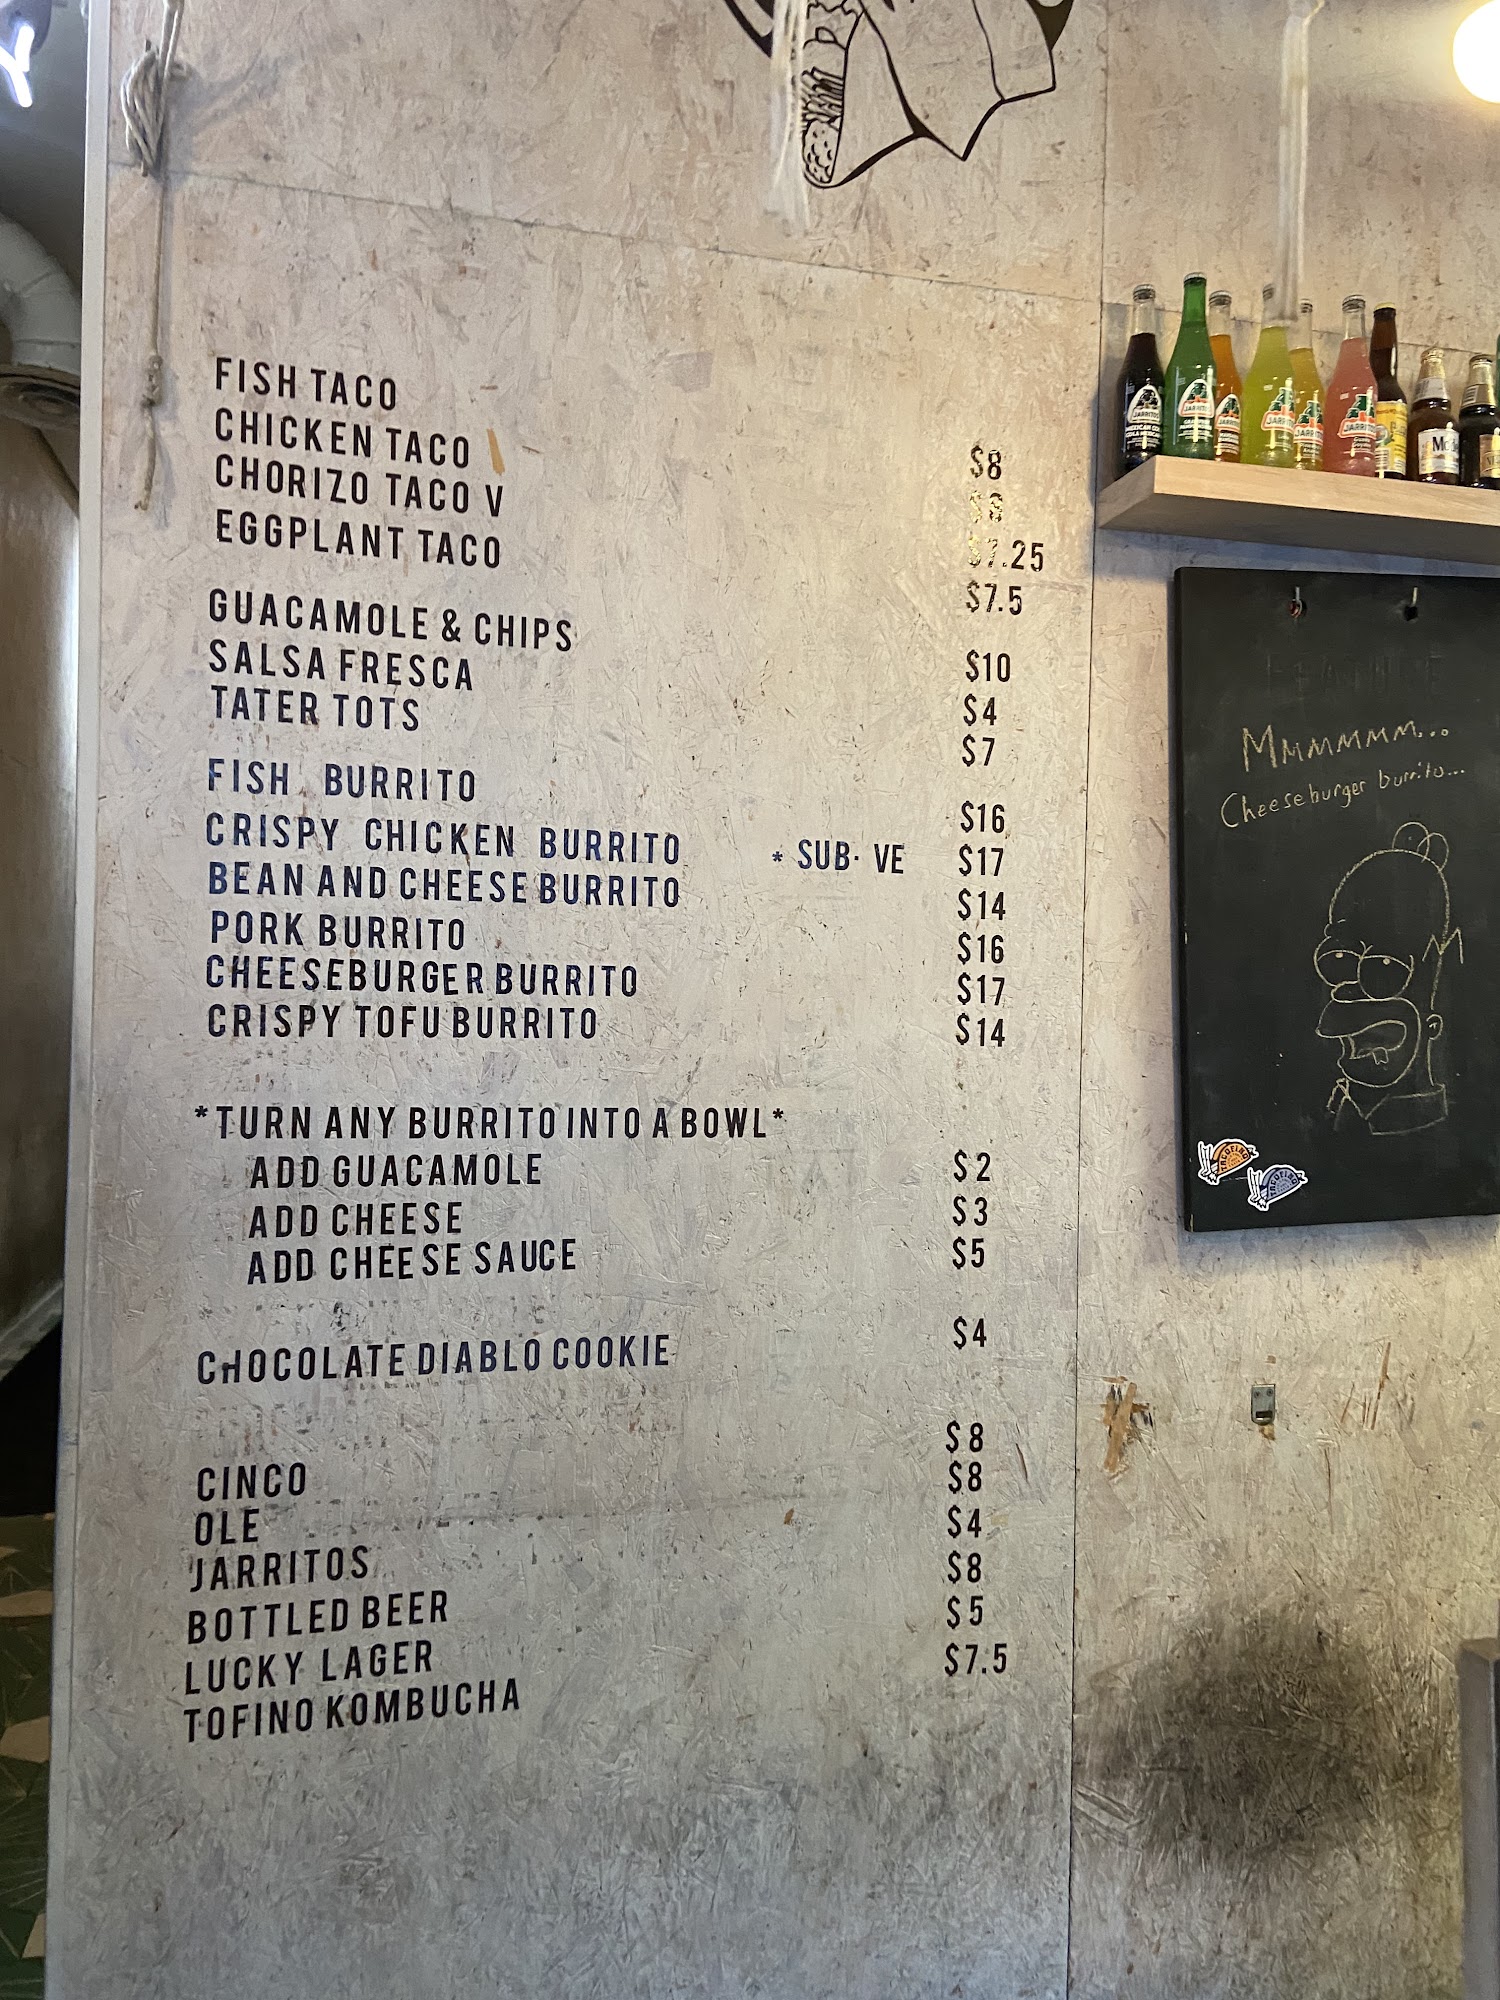 FISH TACO $8
CHICKEN TACO $8
CHORIZO TACO V $7.25
EGGPLANT TACO $7.5
GUACAMOLE & CHIPS $10
SALSA FRESCA $4
TATER TOTS $7
FISH BURRITO $16
CRISPY CHICKEN BURRITO * SUB. VE $17
BEAN AND CHEESE BURRITO $14
PORK BURRITO $16
CHEESEBURGER BURRITO $17
CRISPY TOFU BURRITO $14
*TURN ANY BURRITO INTO A BOWL*
ADD GUACAMOLE $2
ADD CHEESE $3
ADD CHEESE SAUCE $5
CHOCOLATE DIABLO COOKIE $4
CINCO $8
OLE $8
JARRITOS $4
BOTTLED BEER $8
LUCKY LAGER $5
TOFINO KOMBUCHA $7.5
JARRITOS
JARRITOS
JARRITOS
JARRITOS
JARRITOS
JARRITOS
Mmmmmmm...
Cheeseburger burrito...
TACOFINO
TACOFINO